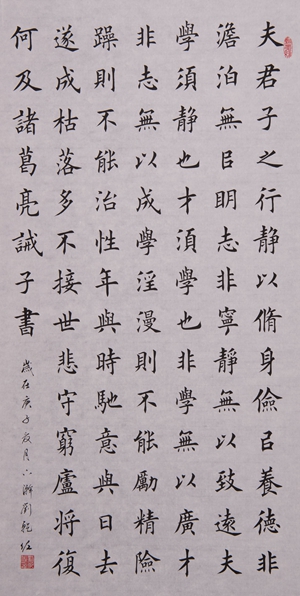 夫君子之行静以脩身儉㠯養德非
澹泊無㠯明志非寧静無以致遠夫
學須静也才須學也非學無以廣才
非志無以成學淫漫則不能勵精險
躁則不能治性年與時馳意與日去
遂成枯落多不接世悲守窮廬將復
何及諸葛亮誡子書
歲在庚子夏月劉